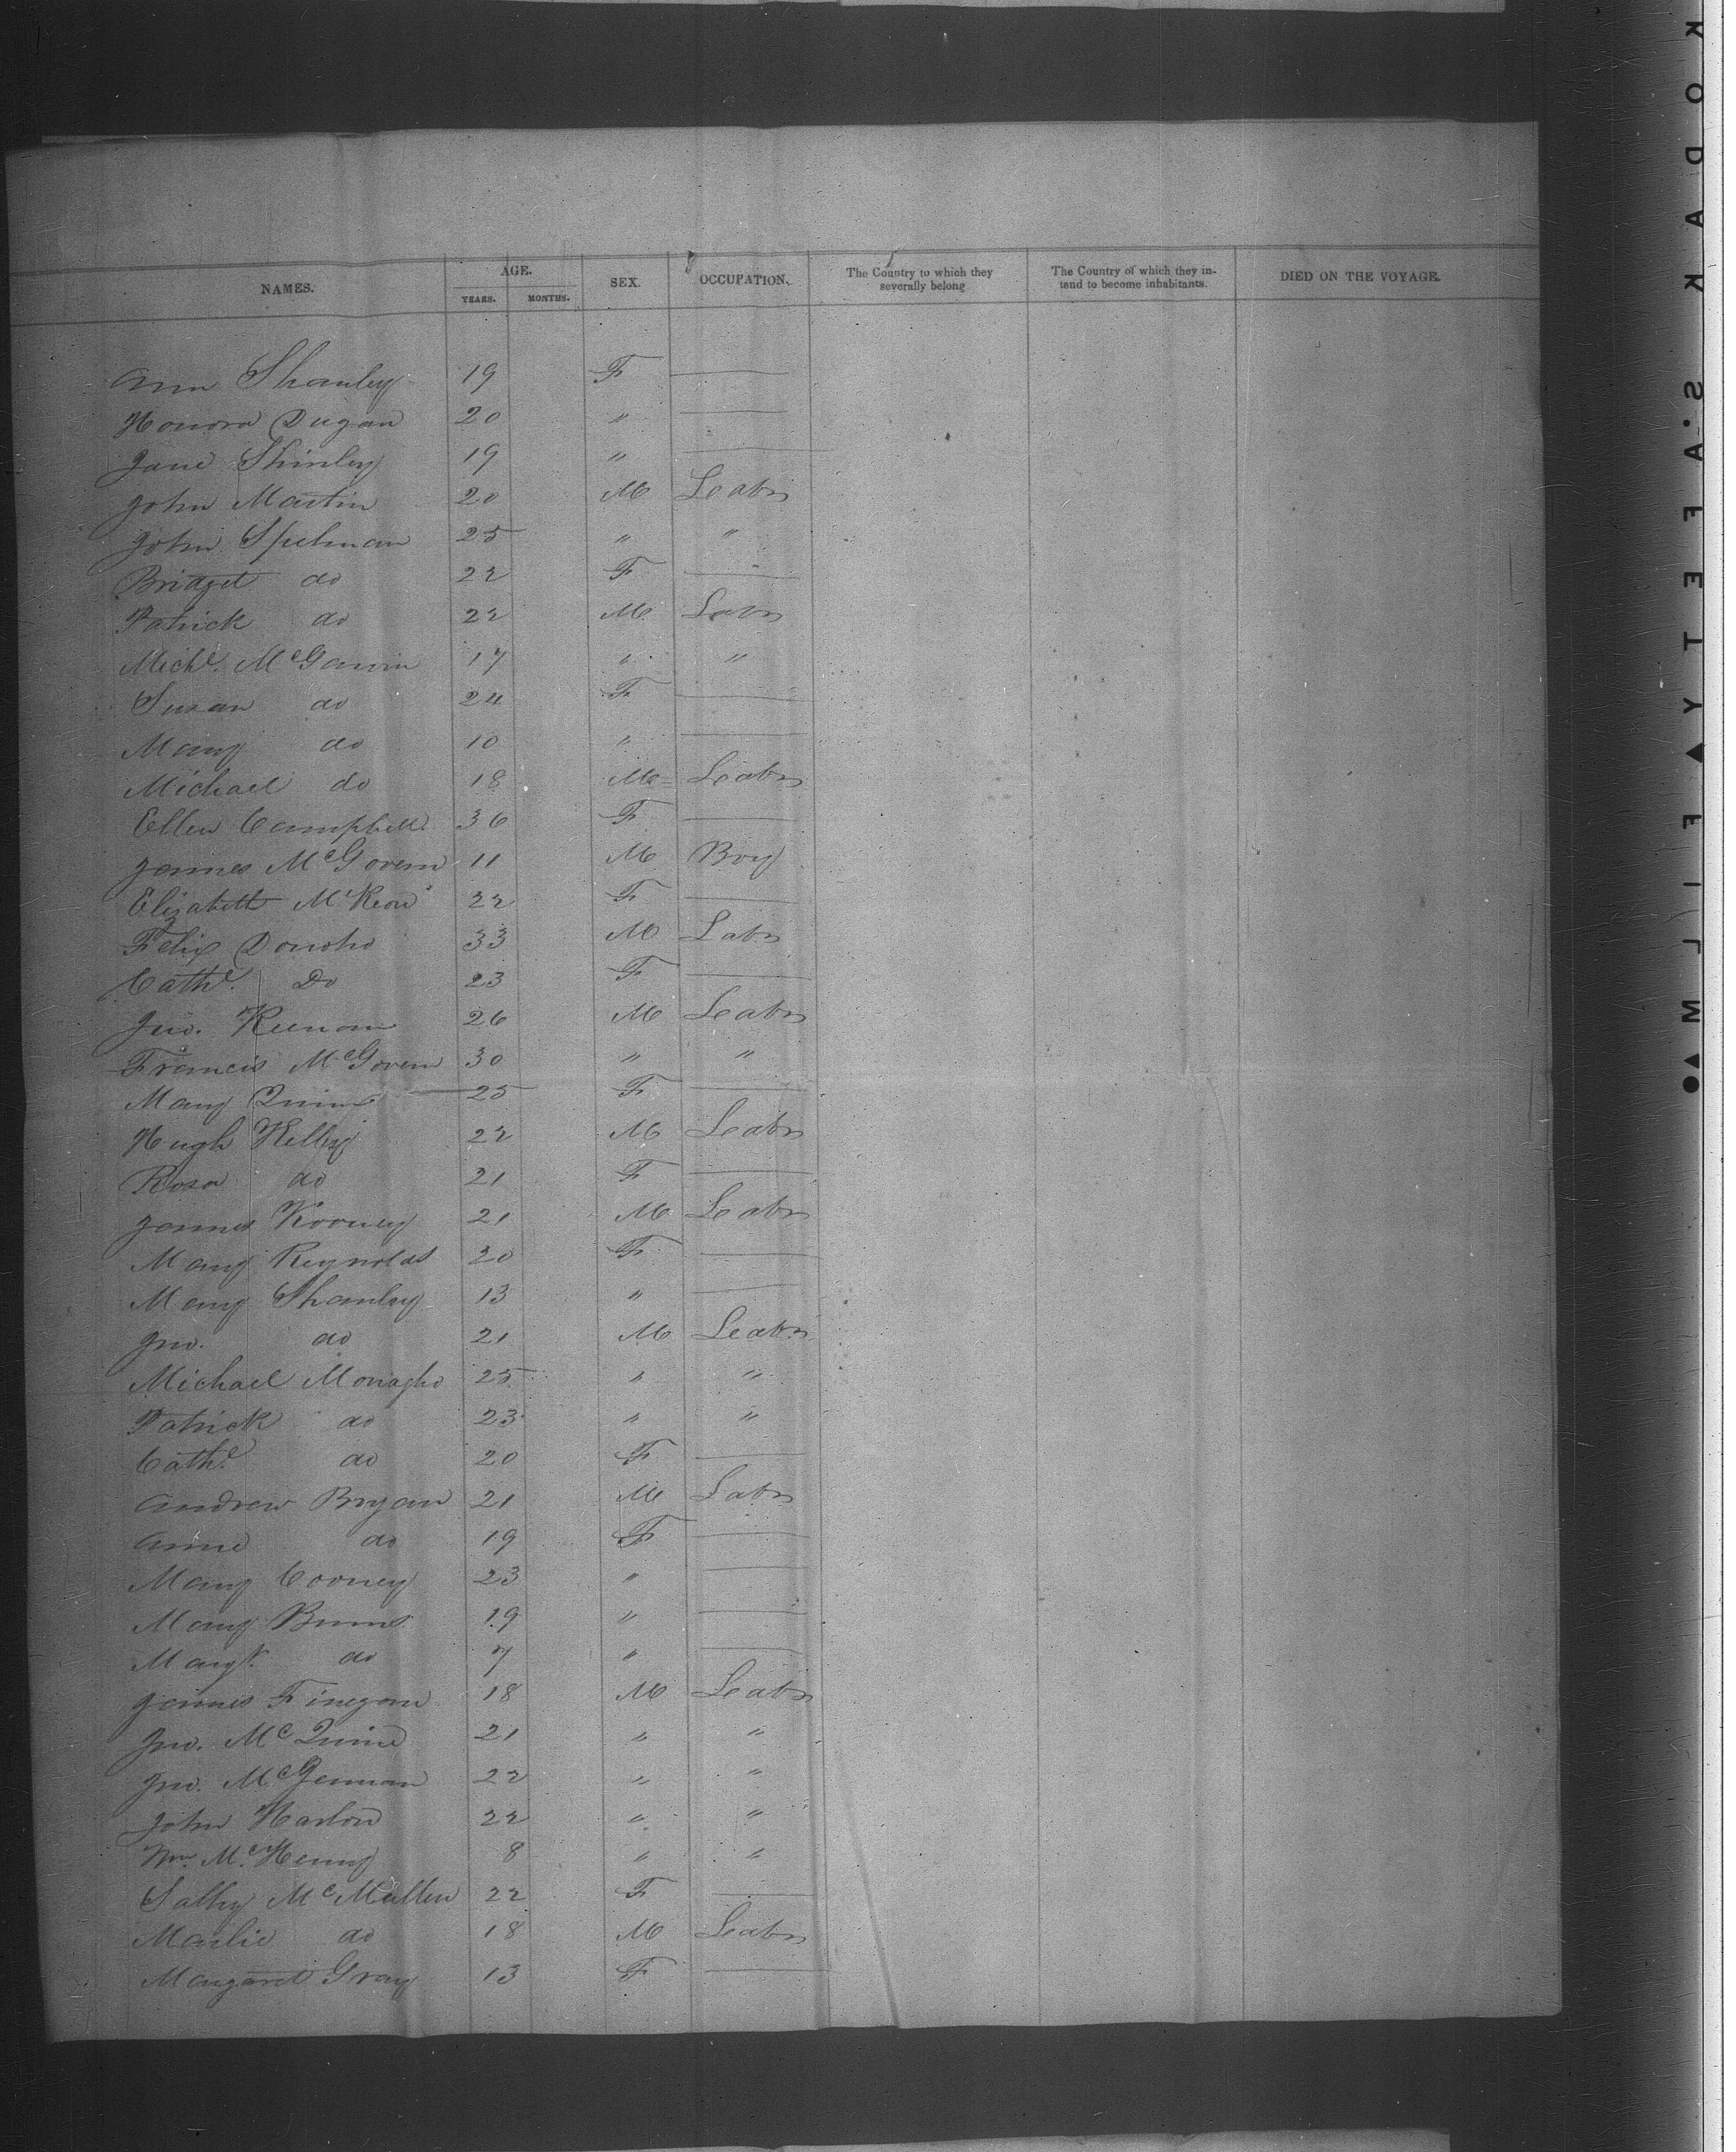 NAMES. AGE. YEARS. MONTHS. SEX. OCCUPATION. The Country to which they severally belong The Country of which they intend to become inhabitants. DIED ON THE VOYAGE.
Ann Shanley 19 F —
Honora Dugan 20 " —
Jane Shinley 19 " —
John Martin 20 M Labr
John Spelman 25 " "
Bridget do 22 F —
Patrick do 22 M Labr
Michl. McGawin 17 " "
Susan do 24 F —
Mary do 10 " —
Michael do 18 M Labr
Ellen Campbell 36 F —
James McGovern 11 M Boy
Elizabeth McKeon 22 F —
Felix Donoho 33 M Labr
Cathe. Do 23 F —
Jno. Keenan 26 M Labr
Francis McGovern 30 " "
Mary Quinn 25 F —
Hugh Kelley 22 M Labr
Rosa do 21 F —
James Rooney 21 M Labr
Mary Reynolds 20 F —
Mary Shanley 13 " —
Jno. do 21 M Labr
Michael Monagho 25 " "
Patrick do 23 " "
Cathe. do 20 F —
Andrew Bryan 21 M Labr
Anne do 19 F —
Mary Cooney 23 " —
Mary Burns 19 " —
Margt. do 7 " —
James Finegan 18 M Labr
Jno. McQuine 21 " "
Jno. McGennan 22 " "
John Harlow 22 " "
Wm. McHenry 8 " "
Salley McMullen 22 F —
do 18 M Labr
Margaret Gray 13 F —
KODAK SAFETY FILM